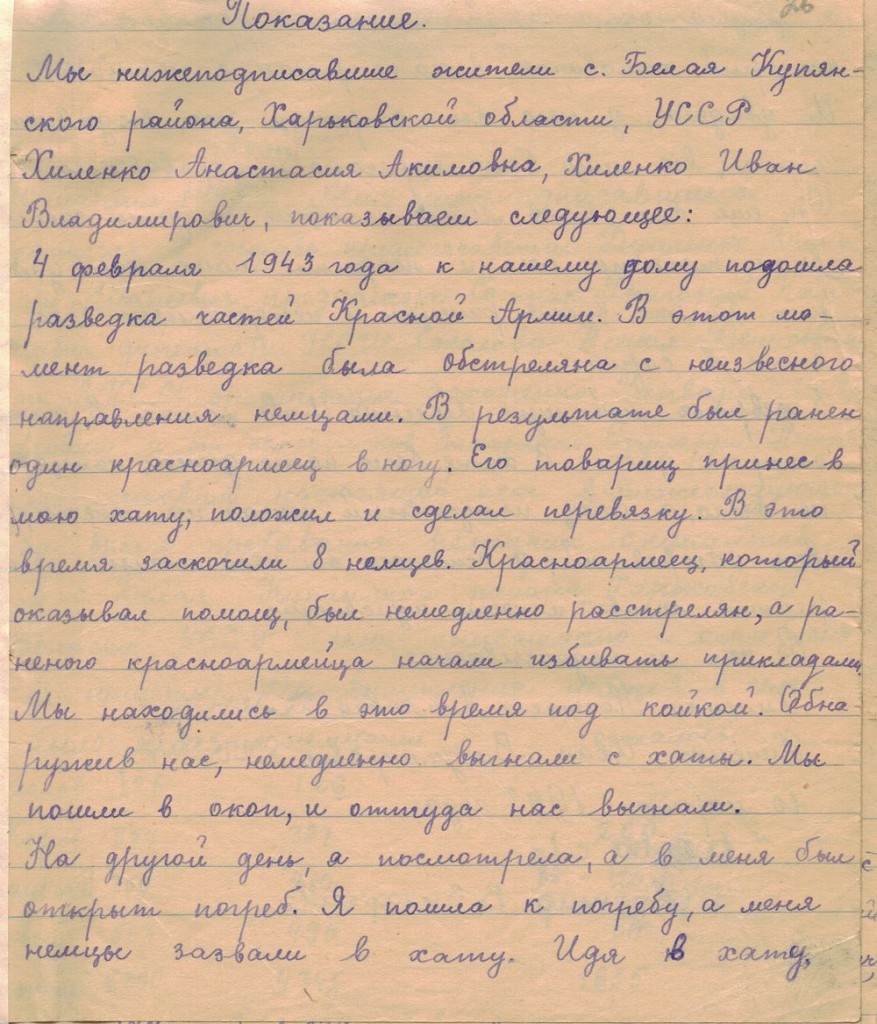 26
Показание.
Мы нижеподписавшие жители с. Белая Купян-
ского района, Харьковской области, УССР
Хиленко Анастасия Акимовна, Хиленко Иван
Владимирович, показываем следующее:
4 февраля 1943 года к нашему дому подошла
разведка частей Красной Армии. В этот мо-
мент разведка была обстреляна с неизвесного
направления немцами. В результате был ранен
один красноармеец в ногу. Его товарищ принес в
мою хату, положил и сделал перевязку. В это
время заскочили 8 немцев. Красноармеец, который
оказывал помощ, был немедленно расстрелян, а ра-
неного красноармейца начали избивать прикладами.
Мы находились в это время под койкой. Обна-
ружив нас, немедленно выгнали с хаты. Мы
пошли в окоп, и оттуда нас выгнали.
На другой день, я посмотрела, а в меня был
открыт погреб. Я пошла к погребу, а меня
немцы зазвали в хату. Идя в хату,